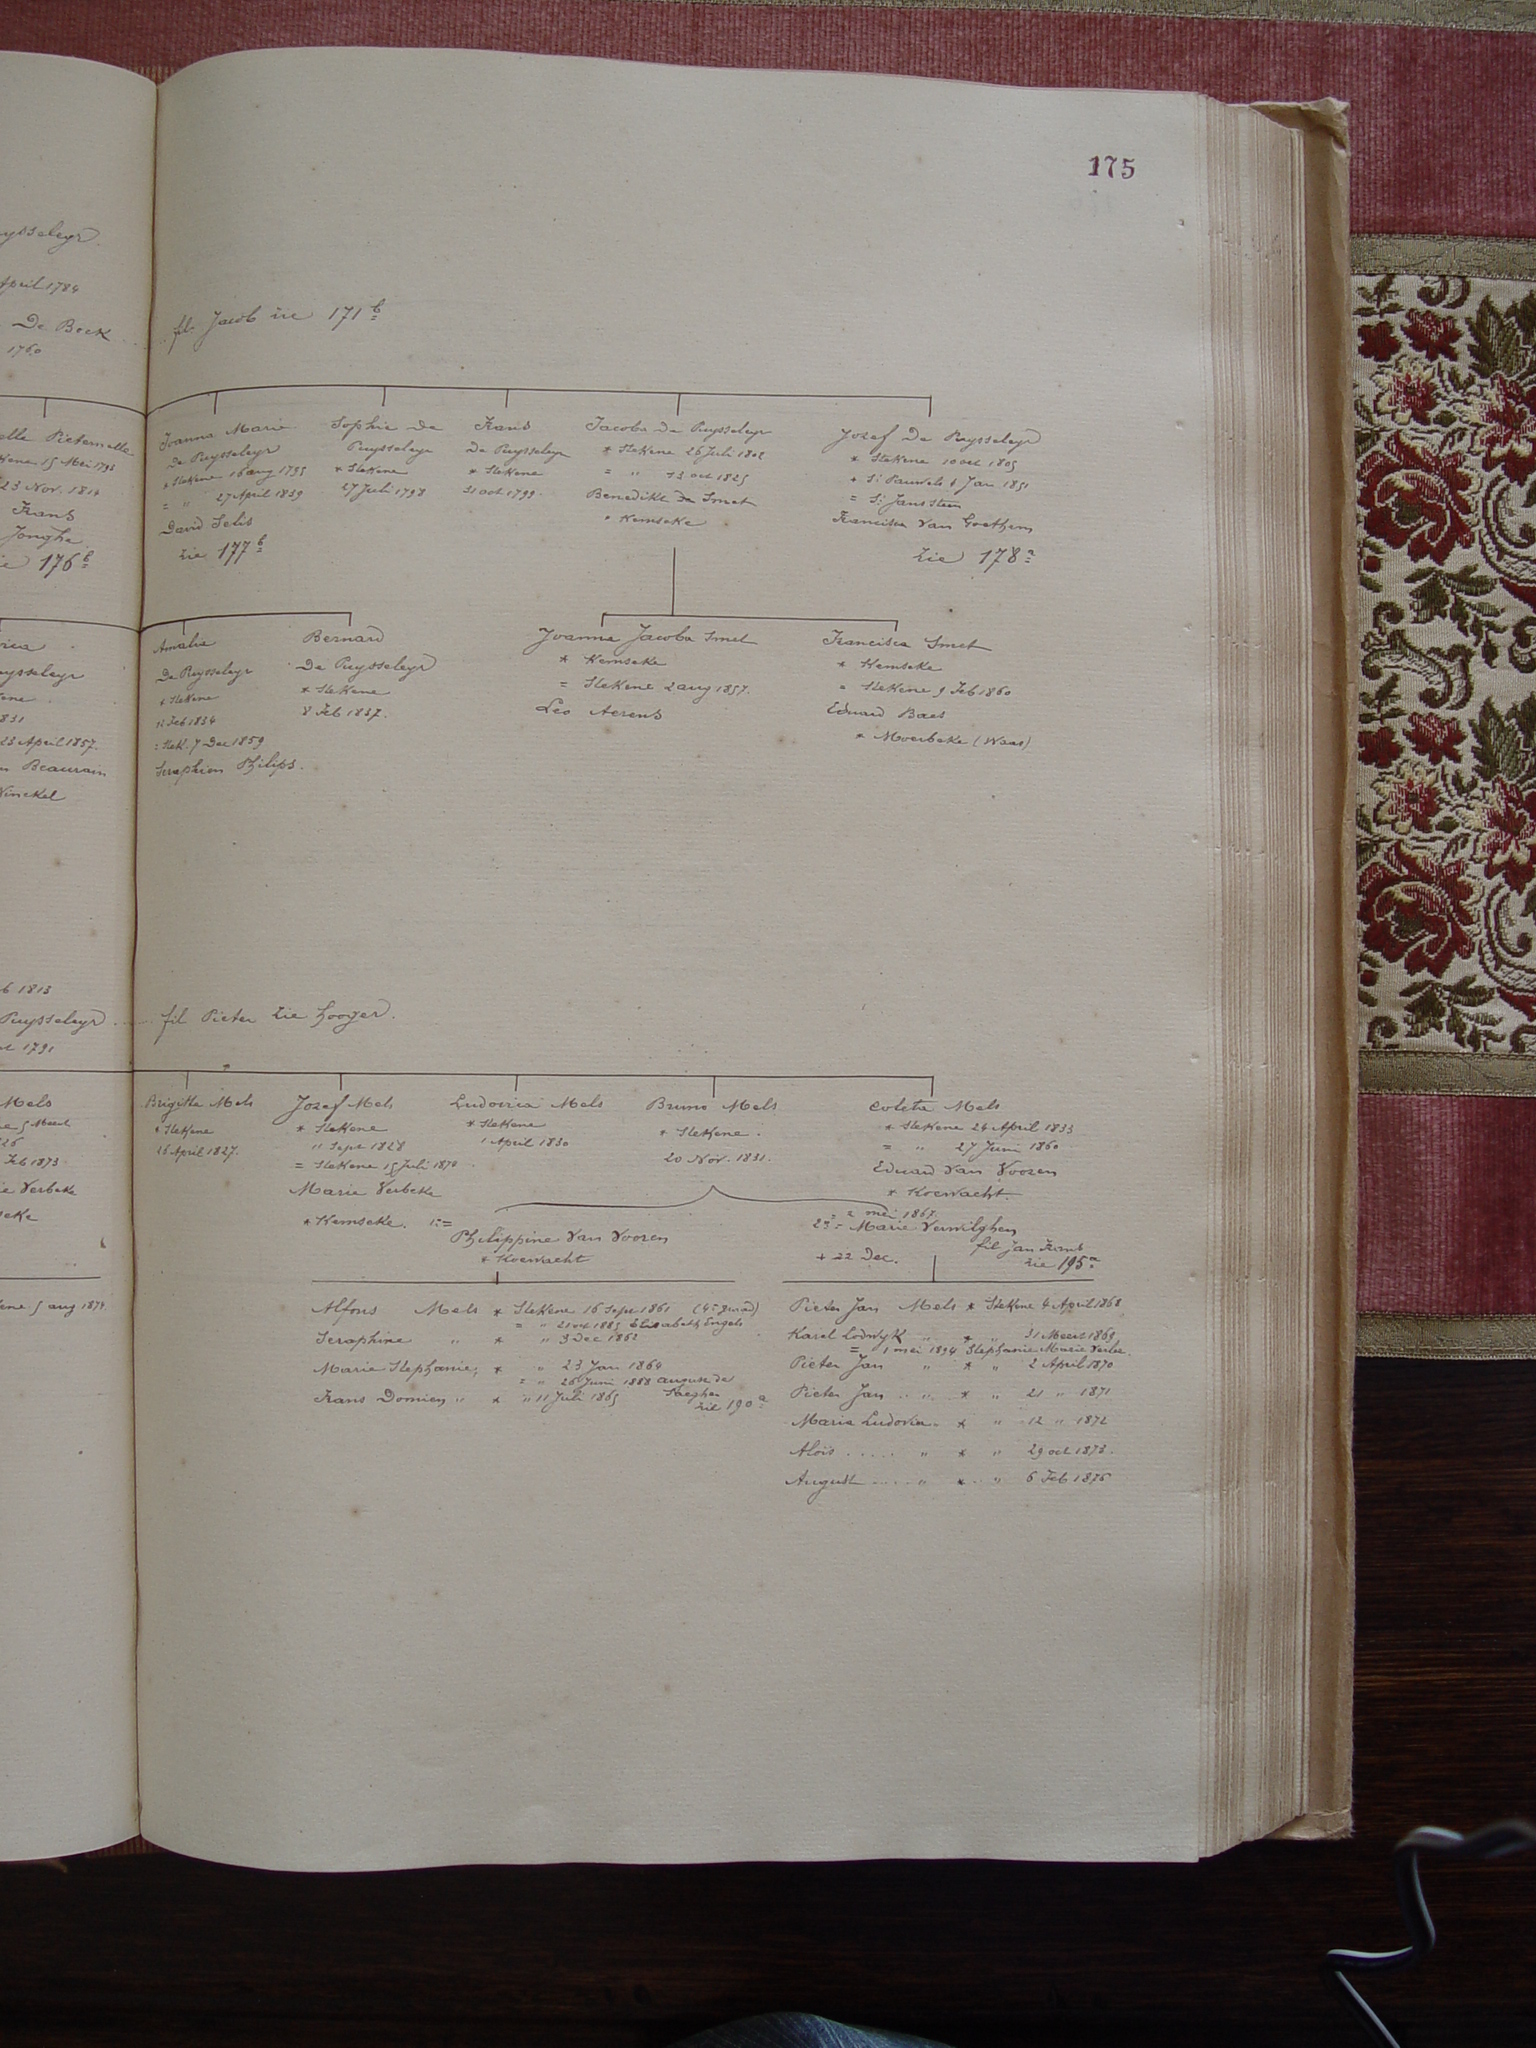 175
ysseleyr.
April 1784
De Bock
1760
fil. Jacob zie 171 b
elle Pieternelle
kene 15 Mei 1793
23 Nov. 1814
Frans
Jonghe
zie 176 b
Joanna Marie
De Puysseleyr
* Stekene 16 aug 1795
= " 27 April 1839
David Selis
zie 177 b
Sophie De
Puysseleyr
* Stekene
27 Juli 1798
Frans
De Puysseleyr
* Stekene
31 oct. 1799.
Jacoba De Puysseleyr
* Stekene 26 Juli 1802
= " 13 oct 1825
Benedikt De Smet
* Kemseke
Jozef De Puysseleyr
* Stekene 10 oct 1805
+ St Pauwels 6 Jan 1851
= St Jans Steen
Francisca Van Goethem
zie 178 a
rica
uysseleyr
kene
1831
23 April 1857.
n Beaurain
Winckel
Amalia
De Puysseleyr
* Stekene
11 Feb 1834
= Stek. 7 Dec 1859
Seraphien Philips.
Bernard
De Puysseleyr
* Stekene
8 Feb 1837.
Joanna Jacoba Smet
* Kemseke
= Stekene 2 aug 1857.
Leo Aerens
Francisca Smet
* Kemseke
= Stekene 9 Feb 1860
Eduard Baes
* Moerbeke (Waas)
b 1813
Puysseleyr
1791
fil Pieter zie hooger.
Mels
e 5 Meert
26
Feb 1873
ie Verbeke
seke
kene 5 aug 1874.
Brigitta Mels
* Stekene
16 April 1827.
Jozef Mels
* Stekene
" Sept 1828
= Stekene 15 Juli 1870
Marie Verbeke
* Kemseke.
Ludovica Mels
* Stekene
1 April 1830
Bruno Mels
* Stekene.
20 Nov. 1831.
Coleta Mels
* Stekene 24 April 1833
= " 27 Juni 1860
Eduard Van Vooren
* Koewacht.
1: =
Philippine Van Vooren
* Koewacht
= 2 mei 1867.
2: = Marie Verwilghen
+ 22 Dec.
fil Jan Frans
zie 195 a
Alfons Mels * Stekene 16 Sept 1861 (4e graad)
= " 21 oct 1885 Elisabeth Engels
Seraphine " * " 3 Dec 1862
Marie Stephanie " * " 23 Jan 1864
= " 26 Juni 1888 August de
Saegher
zie 190 a
Frans Domien " * " 11 Juli 1865
Pieter Jan Mels * Stekene 4 April 1868
Karel Lodwyk " * " 31 Meert 1869
= 1 mei 1894 Stephanie Marie Verbe.
Pieter Jan " * " 2 April 1870
Pieter Jan " * " 21 " 1871
Maria Ludovica " * " 12 " 1872
Alois " * " 29 oct 1873.
August " * " 6 Feb 1876